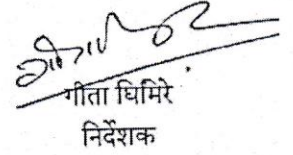 गीता घिमिरे
निर्देशक